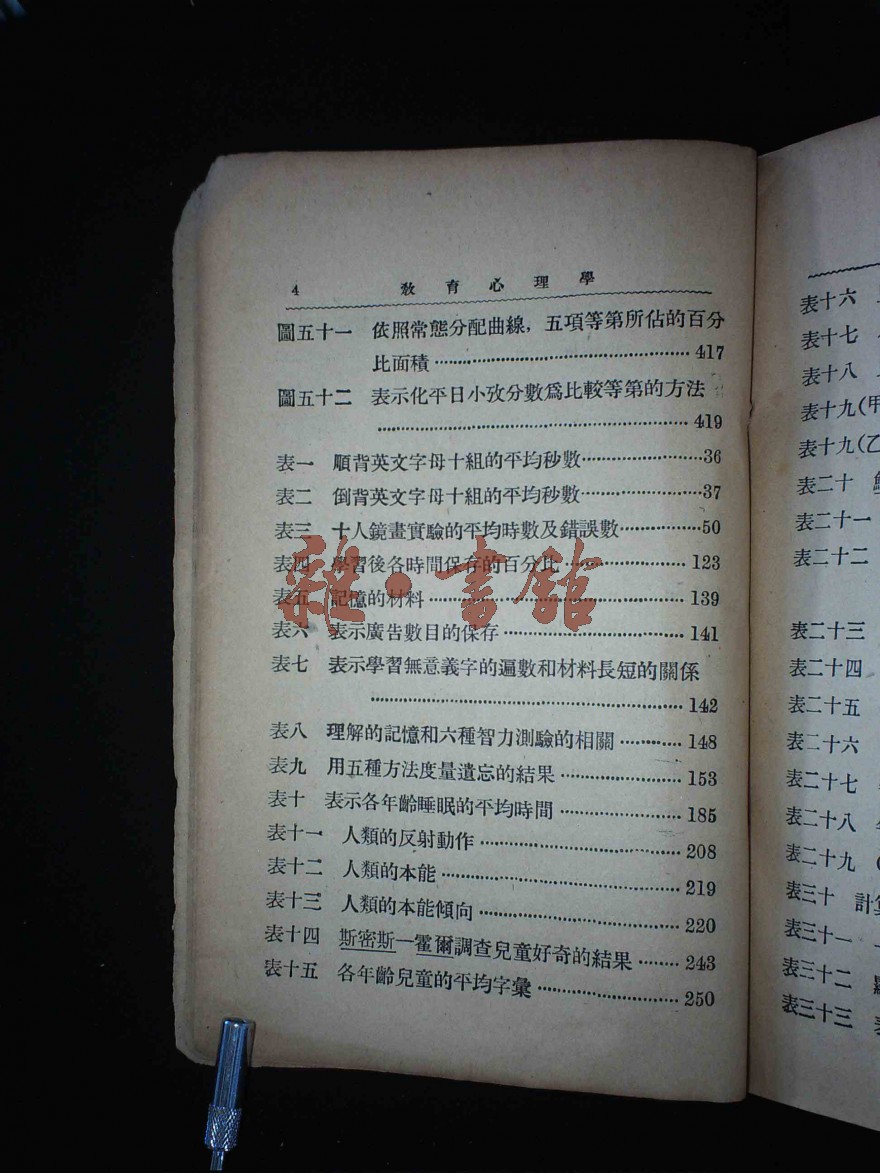 4 教育心理學
圖五十一 依照常態分配曲線，五項等第所佔的百分
比面積 417
圖五十二 表示化平日小攷分數爲比較等第的方法
419
表一 順背英文字母十組的平均秒數 36
表二 倒背英文字母十組的平均秒數 37
表三 十人鏡畫實驗的平均時數及錯誤數 50
表四 學習後各時間保存的百分比 123
表五 記憶的材料 139
表六 表示廣告數目的保存 141
表七 表示學習無意義字的遍數和材料長短的關係
142
表八 理解的記憶和六種智力測驗的相關 148
表九 用五種方法度量遺忘的結果 153
表十 表示各年齡睡眠的平均時間 185
表十一 人類的反射動作 208
表十二 人類的本能 219
表十三 人類的本能傾向 220
表十四 斯密斯—霍爾調查兒童好奇的結果 243
表十五 各年齡兒童的平均字彙 250
雜·書館
表十六
表十七
表十八
表十九(甲
表十九(乙
表二十
表二十一
表二十二
表二十三
表二十四
表二十五
表二十六
表二十七
表二十八
表二十九
表三十 計
表三十一
表三十二
表三十三